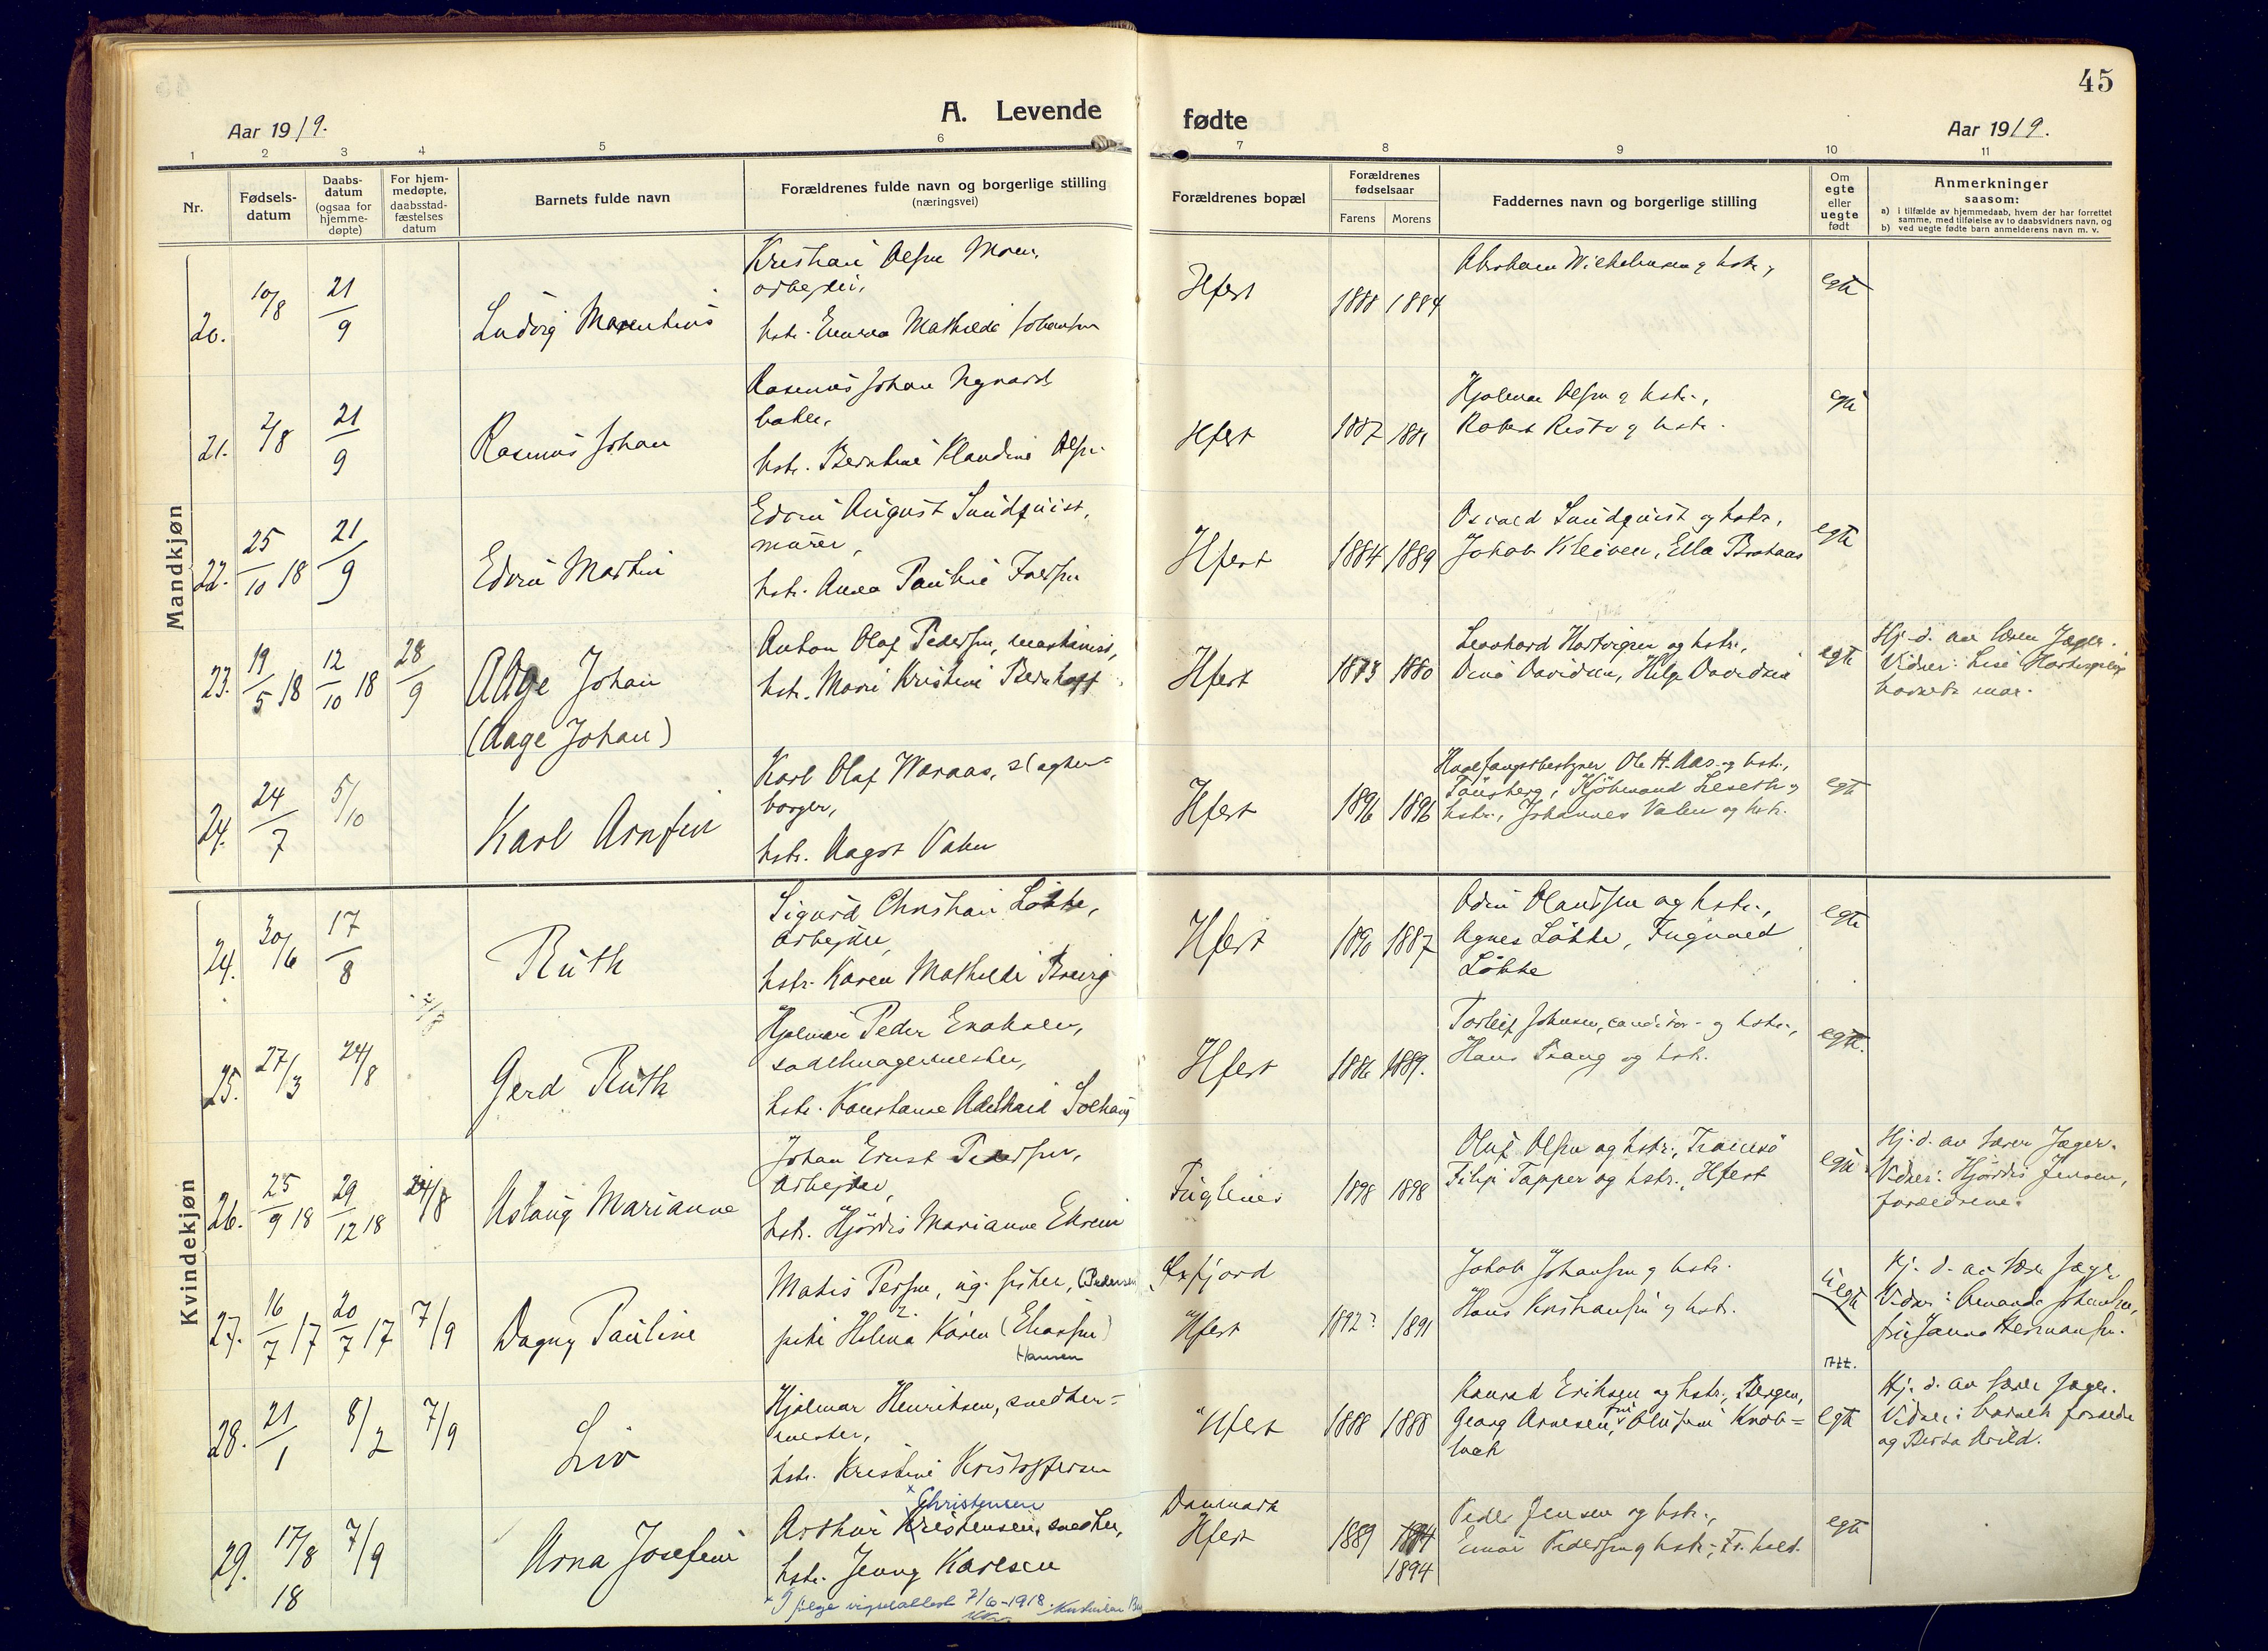 45
Aar 1919.
A. Levende
fødte
Aar 1919.
1 2 3 4 5 6 7 8 9 10 11
Nr.
Fødsels-
datum
Daabs-
datum
(ogsaa for
hjemme-
døpte)
For hjem-
medøpte,
daabsstad-
fæstelses
datum
Barnets fulde navn
Forældrenes fulde navn og borgerlige stilling
(næringsvei)
Forældrenes bopæl
Forældrenes
fødselsaar
Farens Morens
Faddernes navn og borgerlige stilling
Om
egte
eller
uegte
født
Anmerkninger
saasom:
a) i tilfælde av hjemmedaab, hvem der har forrettet
samme, med tilføielse av to daabsvidners navn, og
b) ved uegte fødte barn anmelderens navn m. v.
Mandkjøn
20. 10/8 21/9
Ludvig
Kristian Olsen Moen,
arbejder,
hstr. Emma Mathilde Johansen
Hfest 1888 1884
egte
21. 2/8 21/9
Rasmus Johan
Rasmus Johan Nygaard
baker,
hstr. Berntine Klaudine Olsen
Hfest 1887
Hjalmar Olsen og hstr.,
Robert Risto og hstr.
egte
22. 25/10 18 21/9
Edvin Martin
Edvin August Sundquist,
murer,
hstr. Anna Pauline
Hfest 1884 1889
Osvald Sundquist og hstr.,
Jakob Kleiven, Ella
egte
23. 19/5 18 12/10 18 28/9
Aage Johan
(Aage Johan)
Anton Olaf Pedersen, maskinist,
hstr. Marie Kristine Bernhoff
Hfest 1873 1880
Leonhard Hartvigsen og hstr.,
Dina Davidsen, Helga Davidsen
egte
Hj. d. av lærer Jæger.
Vidner: Lise Hartvigsen
barnets mor.
24. 24/7 5/10
Karl Arnfin
Karl Olaf Waraas, slagter-
borger,
hstr. Aagot Valen
Hfest 1896 1896
Hvalfangstbestyrer Ole H. Aas og hstr.,
Tønsberg, Kjøbmand Leseth og
hstr., Johannes Valen og hstr.
egte
Kvindekjøn
24. 30/6 17/8
Ruth
Sigurd Christian Løkke,
arbejder,
hstr. Karen Mathilde
Hfest 1890 1887
Odin Olaussen og hstr.,
Agnes Løkke, Ingvald
Løkke
egte
25. 27/3 24/8
Gerd Ruth
Hjalmar Peder Enoksen,
sadelmagermester,
hstr. Konstanse Adelhaid Solhaug
Hfest 1886 1889.
Torleif Johnsen, conditor og hstr.,
Hans Prang og hstr.
egte.
26. 25/9 18 29/12 18 24/8
Aslaug Marianne
Johan Ernst Pedersen,
arbejder,
hstr. Hjørdis Marianne Ekrem
Fuglenes 1898 1898
Oluf Olsen og hstr., Tromsø
Filip Tapper og hstr., Hfest
egte
Hj. d. av lærer Jæger.
Vidner: Hjørdis Jensen,
forældrene.
27. 16/7 17 20/7 17 7/9
Dagny Pauline
Matis Persen, ug. fisker, (Pedersen
pike Helena Karen (Eliassen)
Hansen
Øxfjord
Hfest 1892? 1891
Jakob Johansen og hstr.
Hans Kristiansen og hstr.
uegte
Att.
Hj. d. av lærer Jæger.
Vidner: Amanda Johansen,
fru Janna Hermansen.
28. 21/1 8/2 7/9
Liv
Hjalmar Henriksen, snedker-
mester,
hstr. Kristine Kristoffersen
Hfest 1888 1888
Konrad Eriksen og hstr., Bergen,
Georg Arnesen, fru Olufine Knob-
lock
egte
Hj. d. av lærer Jæger.
Vidner: barnets forældre
og Berta Arild.
29. 17/8 18 7/9
Arna Josefine
x Christensen
Arthur Kristensen, snedker,
hstr. Jenny Karlsen
x Ifølge vigselattest 7/6-1918.
Danmark
Hfest 1889 1894
1894
Peder Jensen og hstr.,
Einar Pedersen og hstr.,
egte